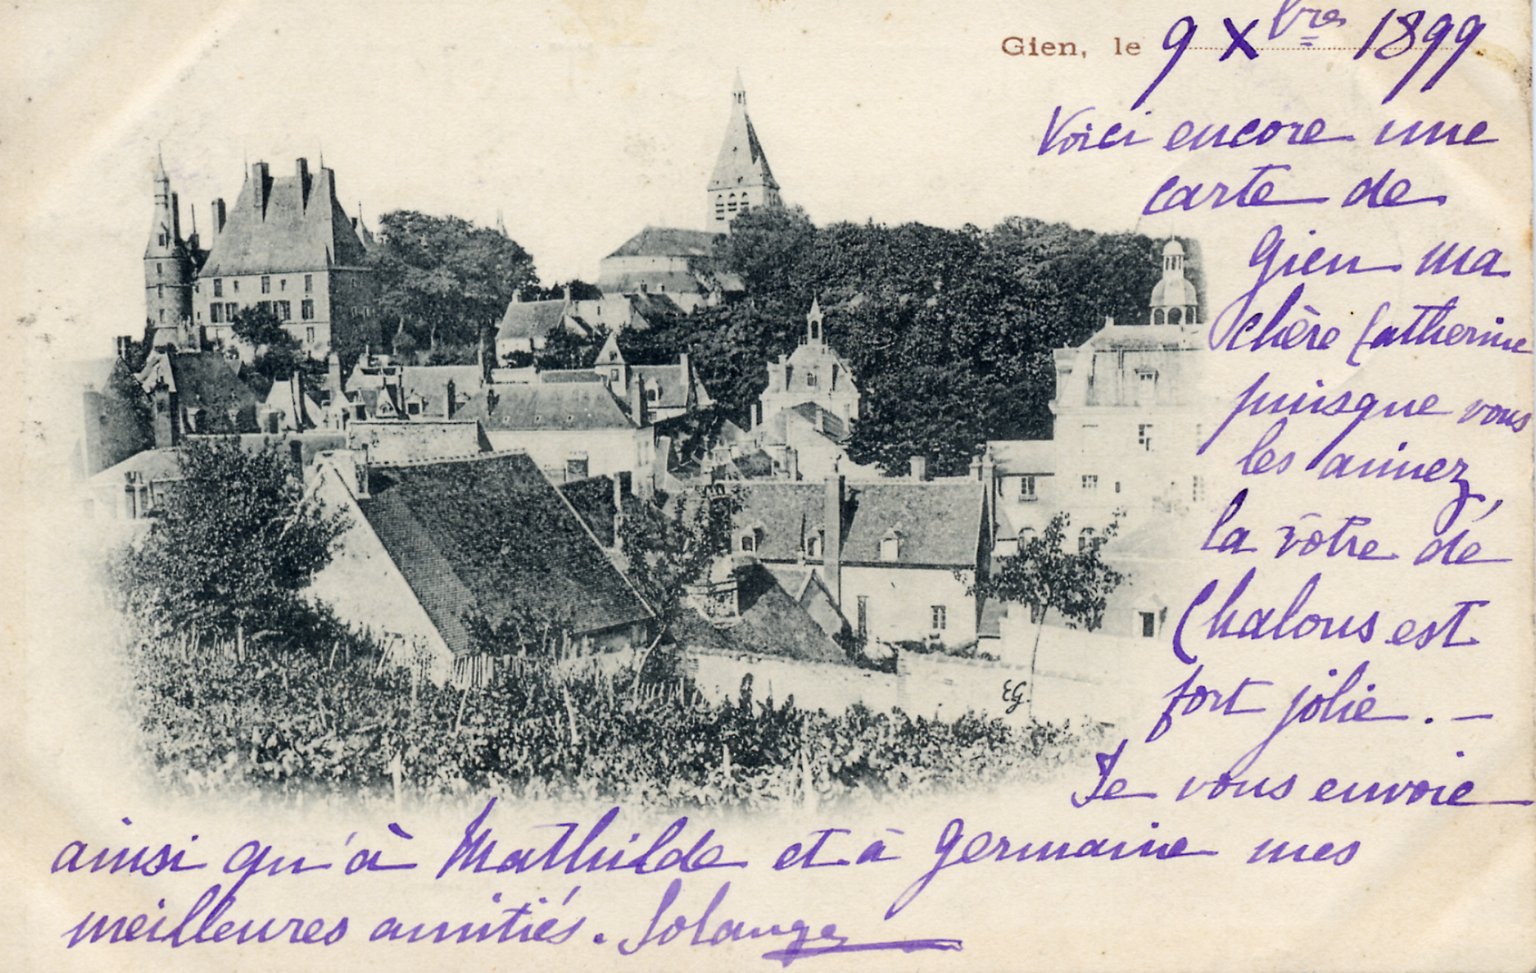 Gien, le 9 Xbres 1899
Voici encore une
carte de
Gien ma
chère Catherine
puisque vous
les aimez,
la vôtre de
Chalons est
fort jolie. —
Je vous envoie
ainsi qu'à Mathilde et à Germaine mes
meilleures amitiés. Solange
EG